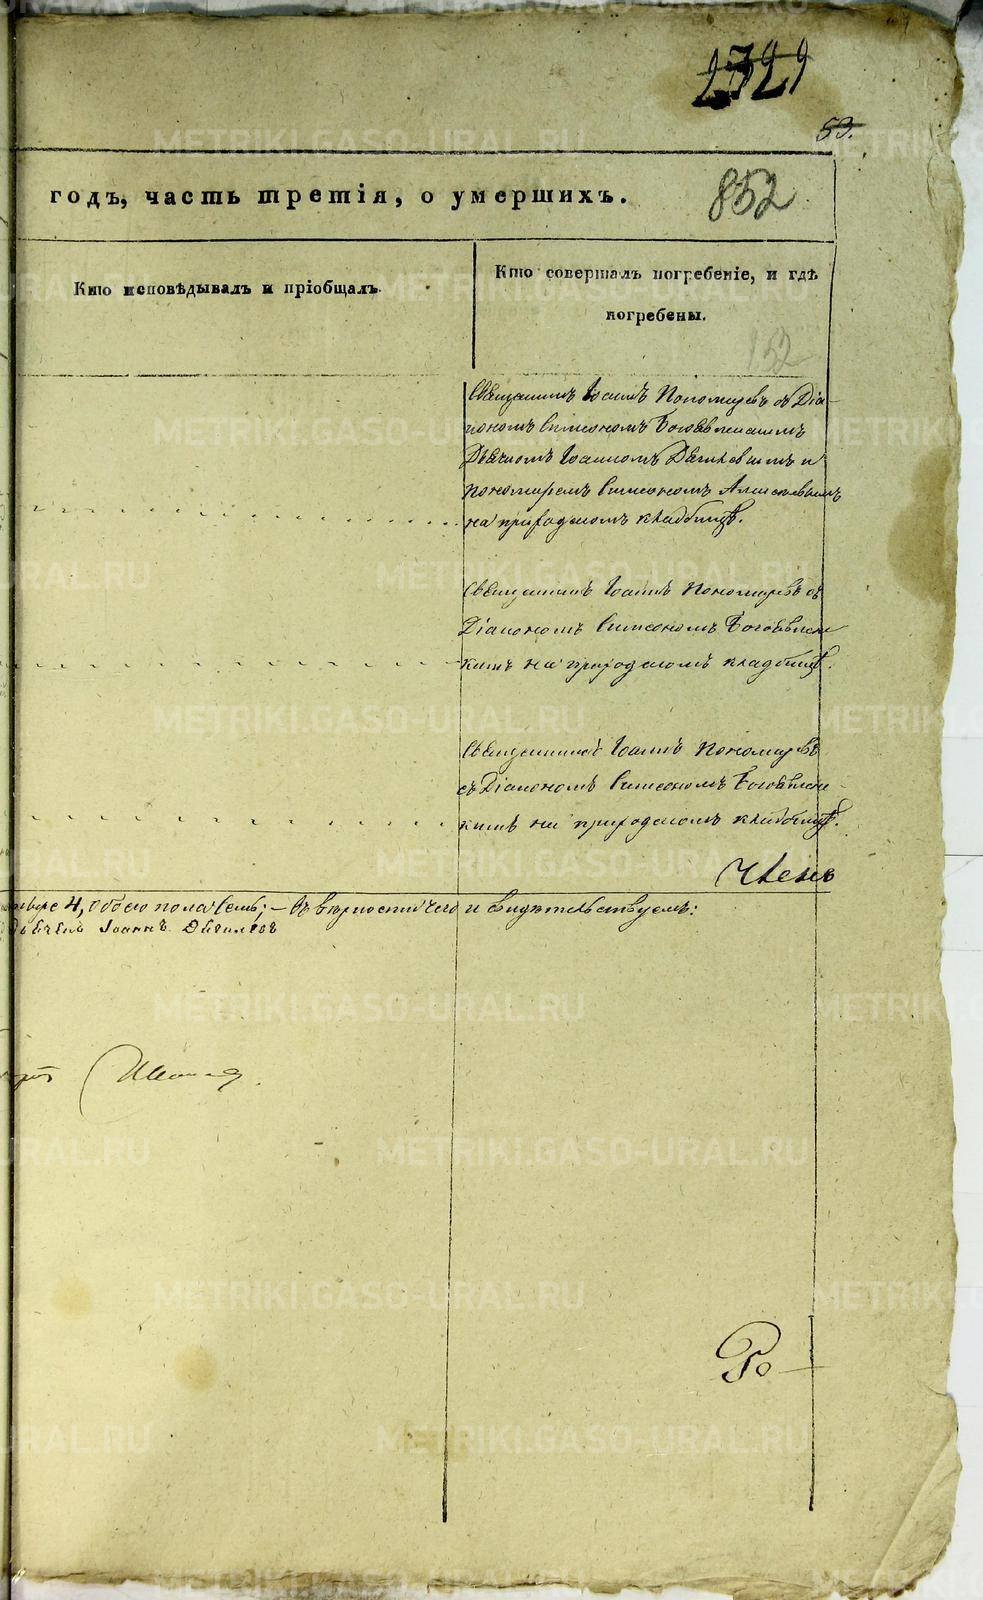 2329
53.
годъ, часть третія, о умершихъ.
852
Кто исповѣдывалъ и пріобщалъ.
Кто совершалъ погребеніе, и гдѣ
погребены.
152
Священникъ Іоаннъ Пономаревъ съ Діа-
кономъ Симеономъ Богоявленскимъ
Дьячкомъ Іоанномъ Дягилевымъ и
пономаремъ Симеономъ
на приходскомъ кладбищѣ.
Священникъ Іоаннъ Пономаревъ съ
Діакономъ Симеономъ Богоявлен
скимъ на приходскомъ кладбищѣ.
Священникъ Іоаннъ Пономаревъ
съ Діакономъ Симеономъ Богоявлен-
скимъ на приходскомъ кладбищѣ.
Членъ
4, обоего пола семь; – въ вѣрности чего и свидѣтельствуемъ:
Дьячекъ Іоаннъ Дягилевъ
METRIKI.GASO-URAL.RU